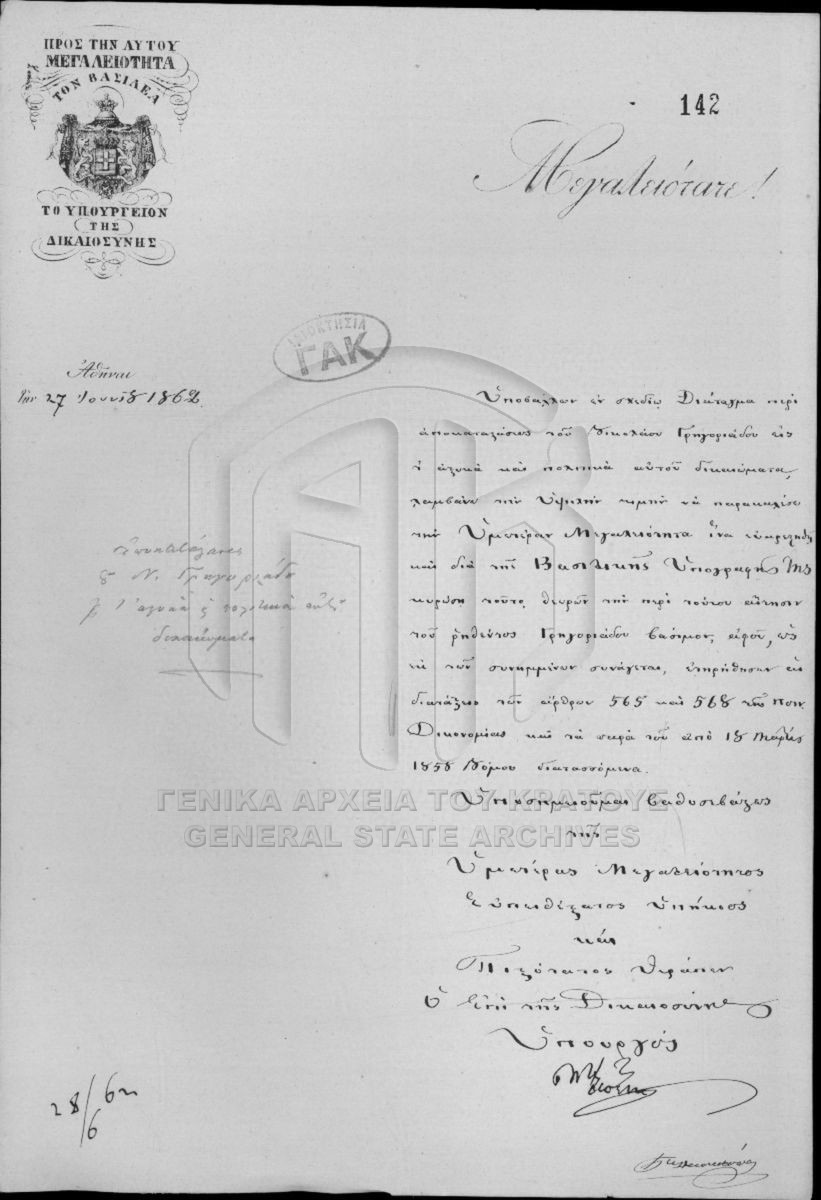 ΠΡΟΣ ΤΗΝ ΑΥΤΟΥ
ΜΕΓΑΛΕΙΟΤΗΤΑ
ΤΟΝ ΒΑΣΙΛΕΑ
ΤΟ ΥΠΟΥΡΓΕΙΟΝ
ΤΗΣ
ΔΙΚΑΙΟΣΥΝΗΣ
142
Μεγαλειότατε!
ΙΔΙΟΚΤΗΣΙΑ
ΓΑΚ
Ἀθῆναι
τὴν 27 Ἰουνίου 1862
Ὑποβάλλων ἐν σχεδίῳ Διάταγμα περὶ
ἀποκαταστάσεως τοῦ Νικολάου Γρηγοριάδου εἰς
τ' ἀστυκὰ καὶ πολιτικὰ αὐτοῦ δικαιώματα,
λαμβάνω τὴν Ὑψηλὴν τιμὴν νὰ παρακαλέσω
τὴν Ὑμετέραν Μεγαλειότητα ἵνα εὐαρεστηθῇ
καὶ διὰ τῆς Βασιλικῆς Ὑπογραφῆς Της
κυρώσῃ τοῦτο, θεωρῶν τὴν περὶ τούτου αἴτησιν
τοῦ ῥηθέντος Γρηγοριάδου βάσιμον, ἀφοῦ, ὡς
ἐκ τῶν συνημμένων συνάγεται, ἐτηρήθησαν αἱ
διατάξεις τῶν ἄρθρων 565 καὶ 568 τῆς Ποιν.
Δικονομίας καὶ τὰ παρὰ τοῦ ἀπὸ 18 Μαρτίου
1858 Νόμου διατασσόμενα.
Ν. Γρηγοριάδη
τ' ἀστυκὰ κ πολιτικὰ αὐτοῦ
δικαιώματα
ΓΕΝΙΚΑ ΑΡΧΕΙΑ ΤΟΥ ΚΡΑΤΟΥΣ
GENERAL STATE ARCHIVES
Ὑποσημειοῦμαι βαθυσεβάστως
τῆς
Ὑμετέρας Μεγαλειότητος
Εὐπειθέστατος Ὑπήκοος
καὶ
Πιστότατος θεράπων
Ὁ ἐπὶ τῆς Δικαιοσύνης
Ὑπουργός
28/6 62